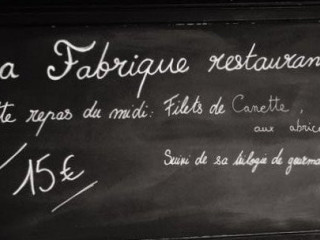 a Fabrique restauran
te repas du midi: Filets de Canette,
aux abric
15€
Suivi de sa trilogie de gourma